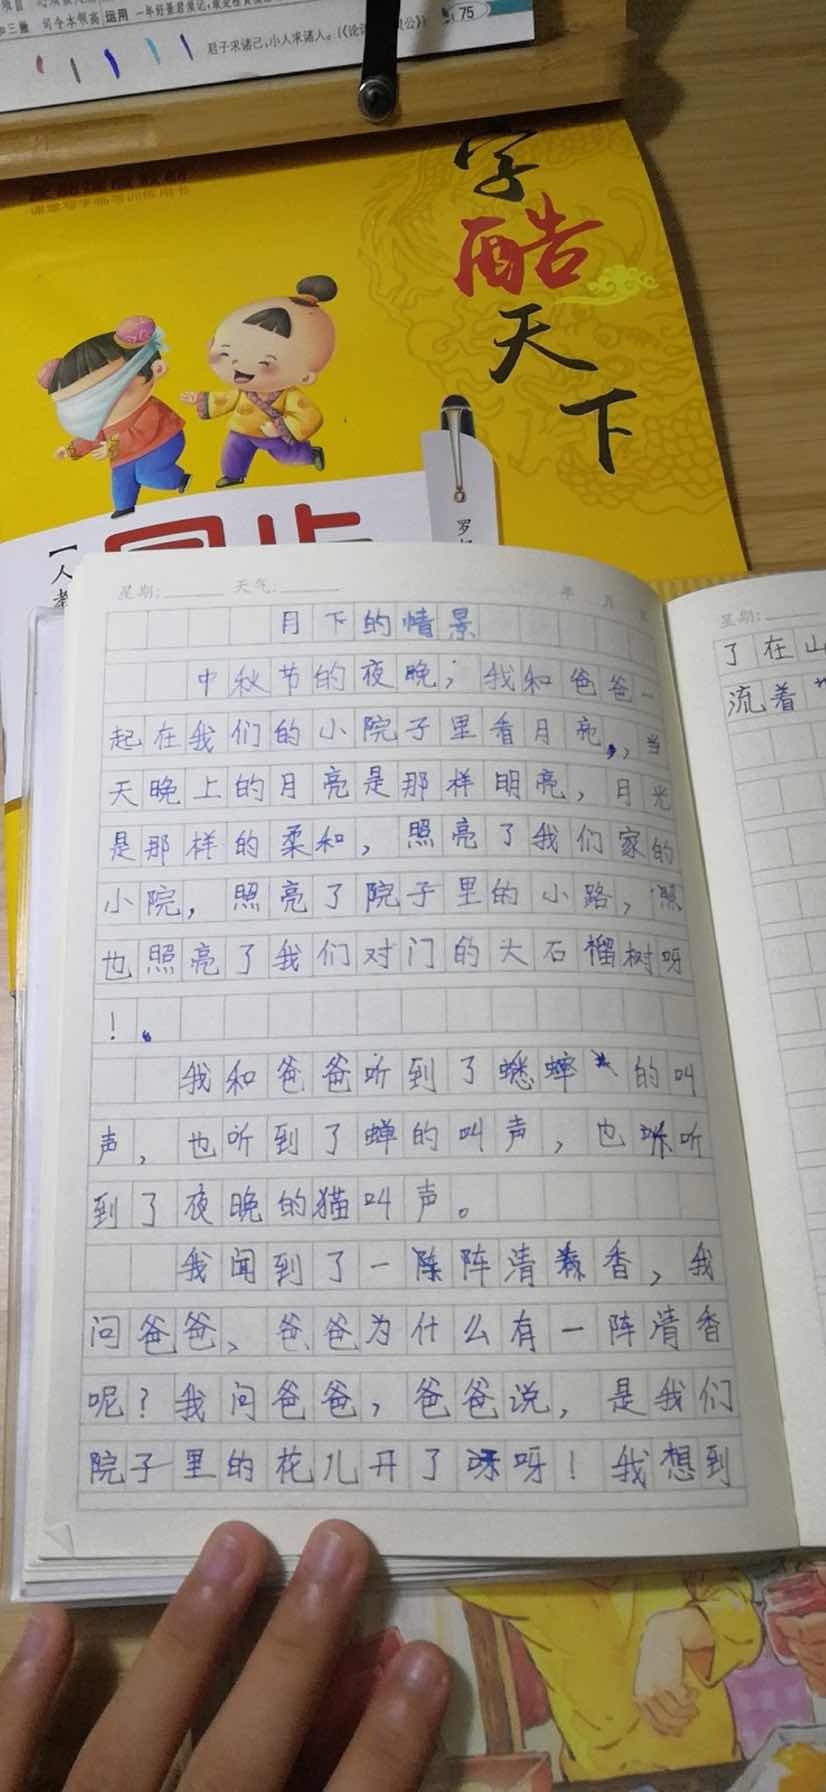 司令本领高 运用
君子求诸己,小人求诸人。
75
字酷天下
星期: 天气: 年 月
月下的情景
中秋节的夜晚;我和爸爸一
起在我们的小院子里看月亮,当
天晚上的月亮是那样明亮,月光
是那样的柔和,照亮了我们家的
小院,照亮了院子里的小路,
也照亮了我们对门的大石榴树呀
!。
我和爸爸听到了蟋蟀的叫
声,也听到了蝉的叫声,也听
到了夜晚的猫叫声。
我闻到了一阵清香,我
问爸爸、爸爸为什么有一阵清香
呢?我问爸爸,爸爸说,是我们
院子里的花儿开了呀!我想到
星期:
了在山
流着